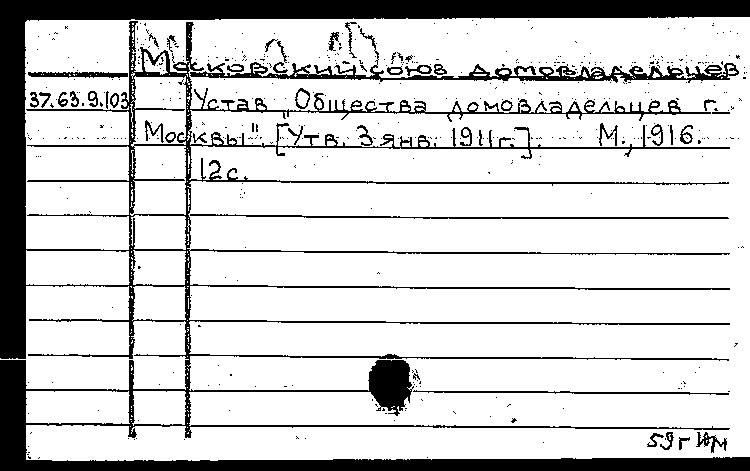 Московский союз домовладельцев.
37.63.9.103 Устав „Общества домовладельцев г.
Москвы". [Утв. 3 янв. 1911г.]. М., 1916.
12с.
59г